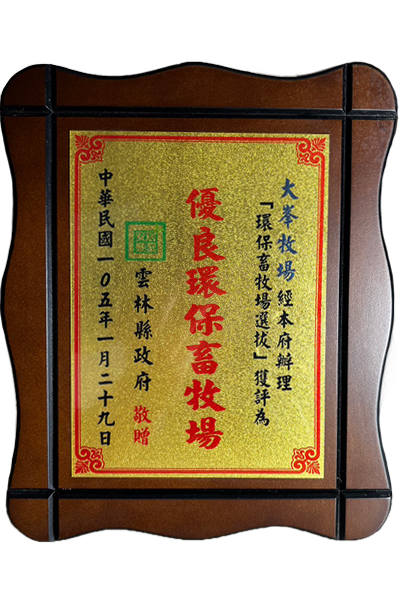 大峯牧場 經本府辦理
「環保畜牧場選拔」獲評為
優良環保畜牧場
雲林縣政府 敬贈
中華民國一０五年一月二十九日